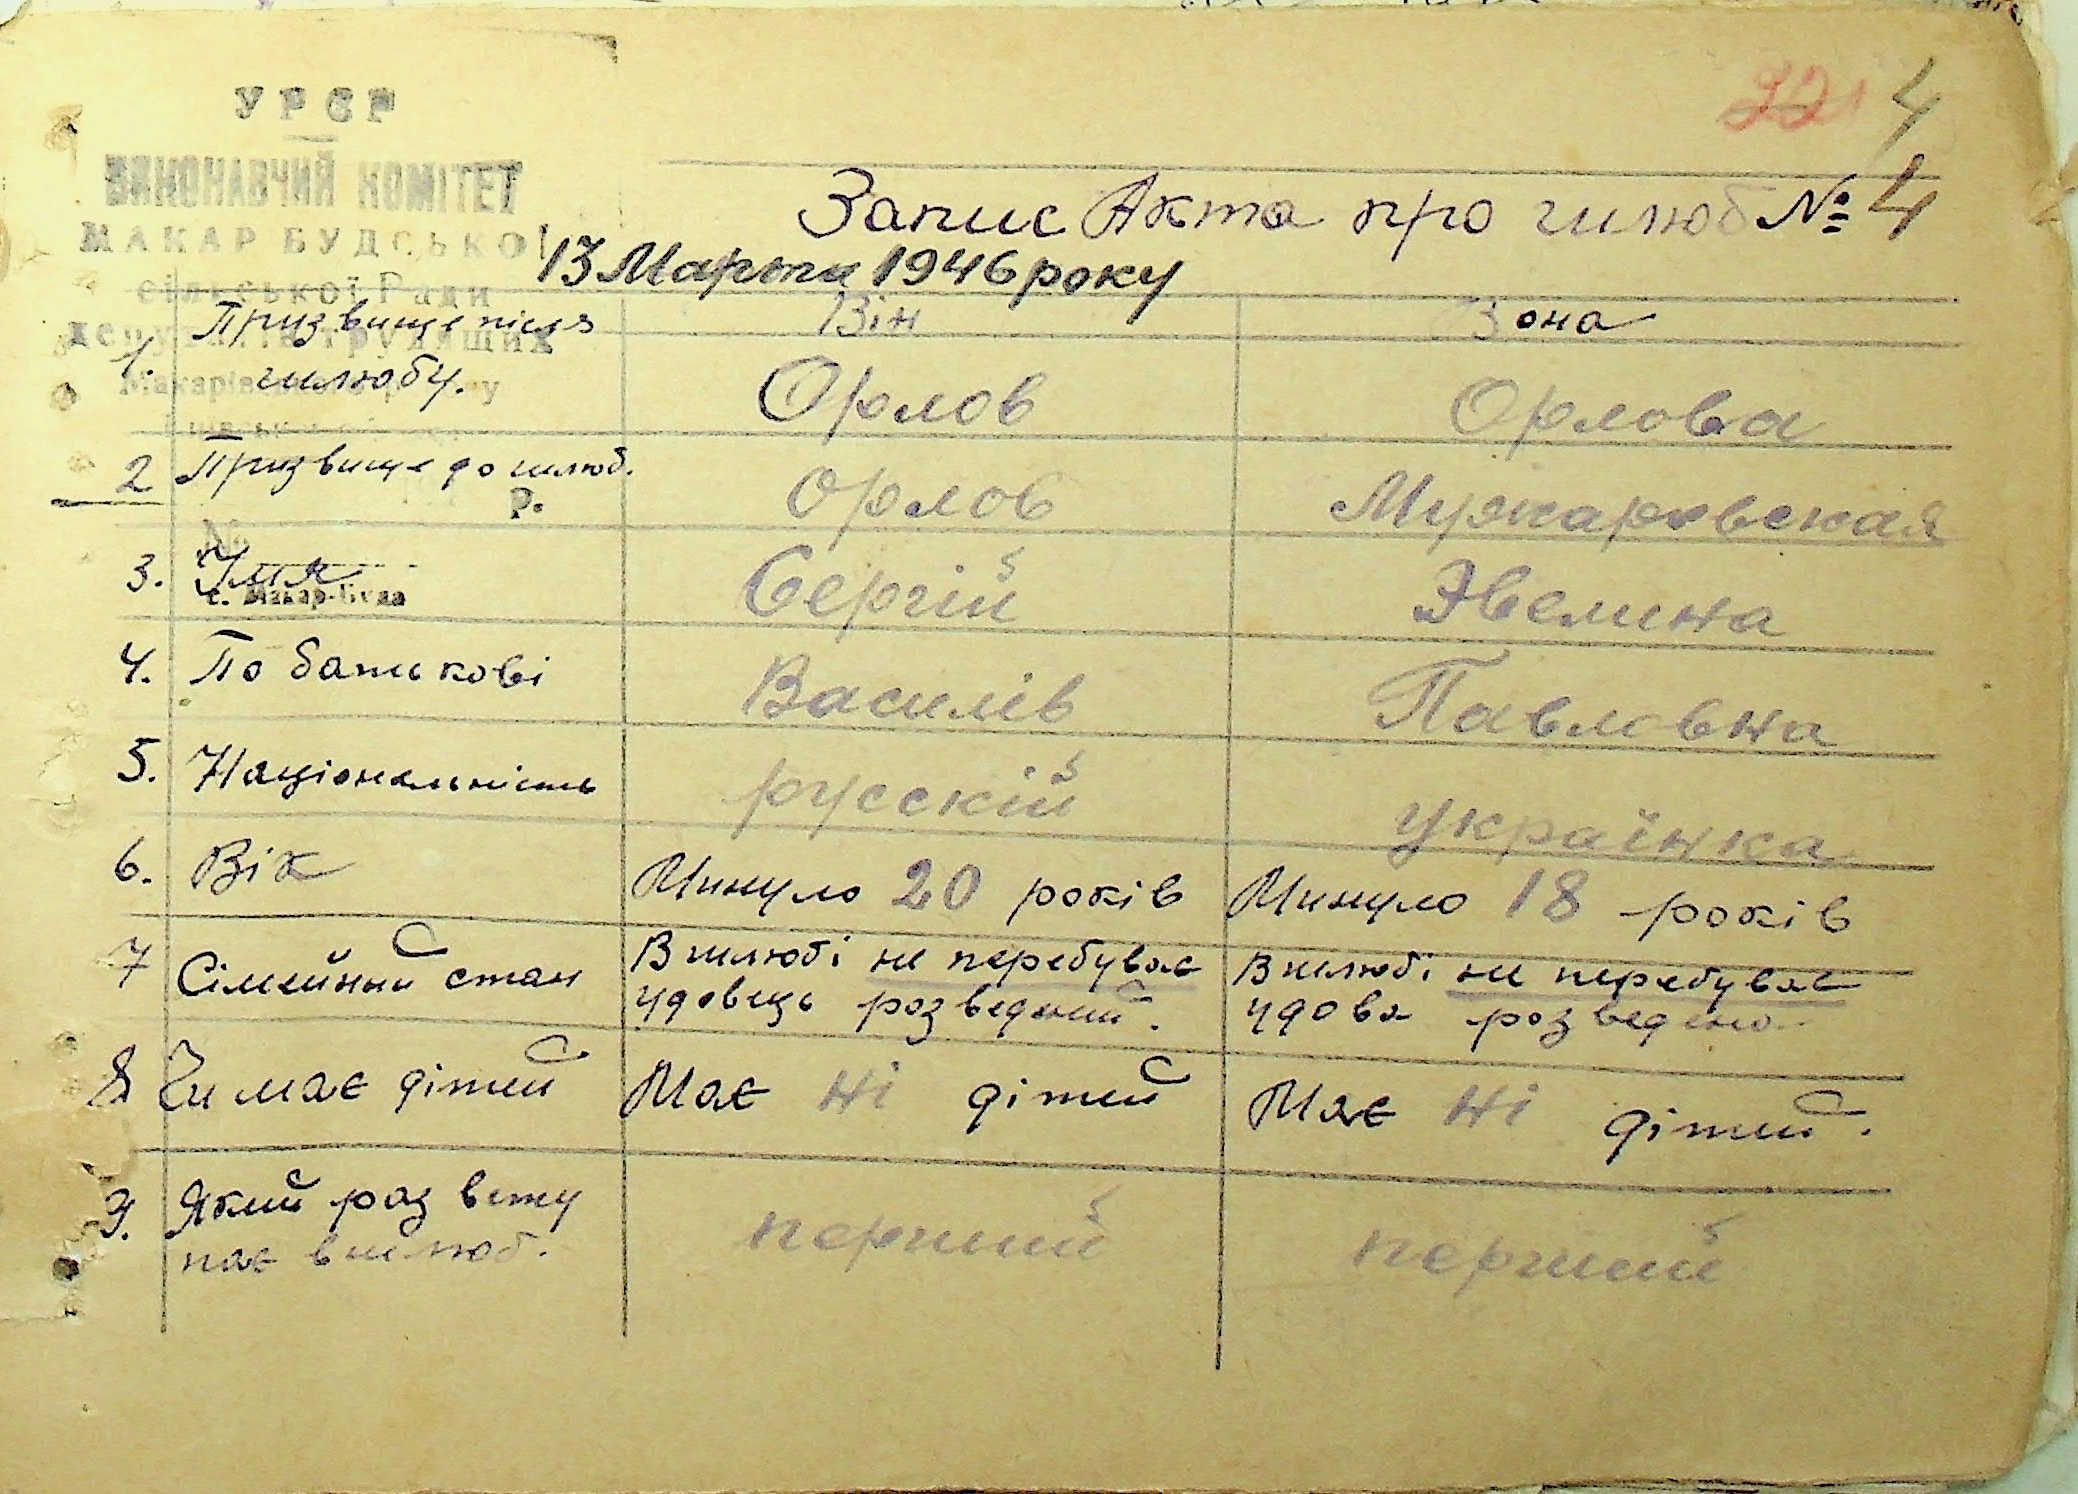 УРСР
ВИКОНАВЧИЙ КОМІТЕТ
МАКАР БУДСЬКОЇ
сільської Ради
депутатів трудящих
Макарівського р
22 4
Запис Акта про шлюб № 4
13 Марта 1946 року
Він Зона
1. Призвище після шлюбу. Орлов Орлова
2 Призвище до шлюб. Орлов Мужаровская
Р.
№
3. Імя Сергій Эвелина
с. Макар-Буда
4. По батькові Василів Павловна
5. Національність русскій українка
6. Вік Минуло 20 років Минуло 18 років
7 Сімейний стан В шлюбі не перебуває В шлюбі не перебуває
удовець розведений. удова розведена.
8 Чи має дітей Має ні дітей Має ні дітей.
9. Який раз всту
пає в шлюб. перший перший